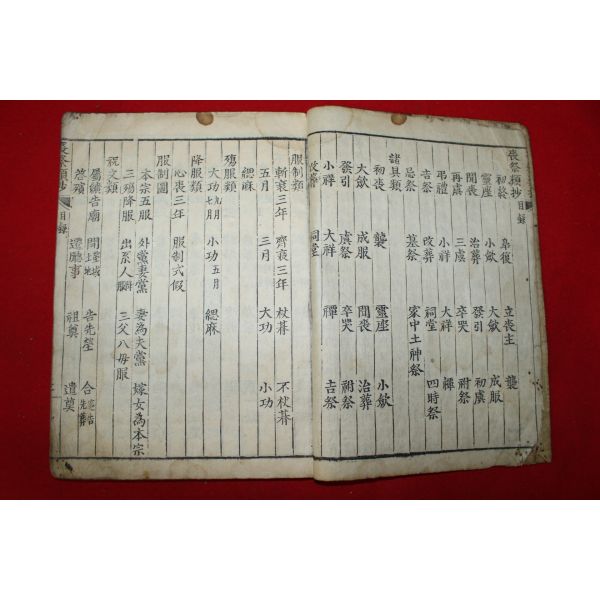 喪祭類抄目錄
初終 皐復 立喪主 襲
靈座 小斂 大斂 成服
聞喪 治葬 發引 初虞
再虞 三虞 卒哭 祔祭
弔禮 小祥 大祥 禫
吉祭 改葬 祠堂 四時祭
忌祭 墓祭 家中土神祭
諸具類
初喪 襲 靈座 小斂
大斂 成服 聞喪 治葬
發引 虞祭 卒哭 祔祭
小祥 大祥 禫 吉祭
改葬 祠堂
服制類
斬衰三年 齊衰三年 杖朞 不杖朞
五月 三月 大功 小功
緦麻
殤服類
大功九月七月 小功五月 緦麻
降服類
心喪三年 服制式假
服制圖
本宗五服 外黨妻黨 妻爲夫黨 嫁女爲本宗
三殤降服 出系人 三父八母服
祝文類
屬纊告廟 開塋域土地 告先塋 合葬告先葬
啓殯 遷廳事 祖奠 遣奠
喪祭類抄 目錄